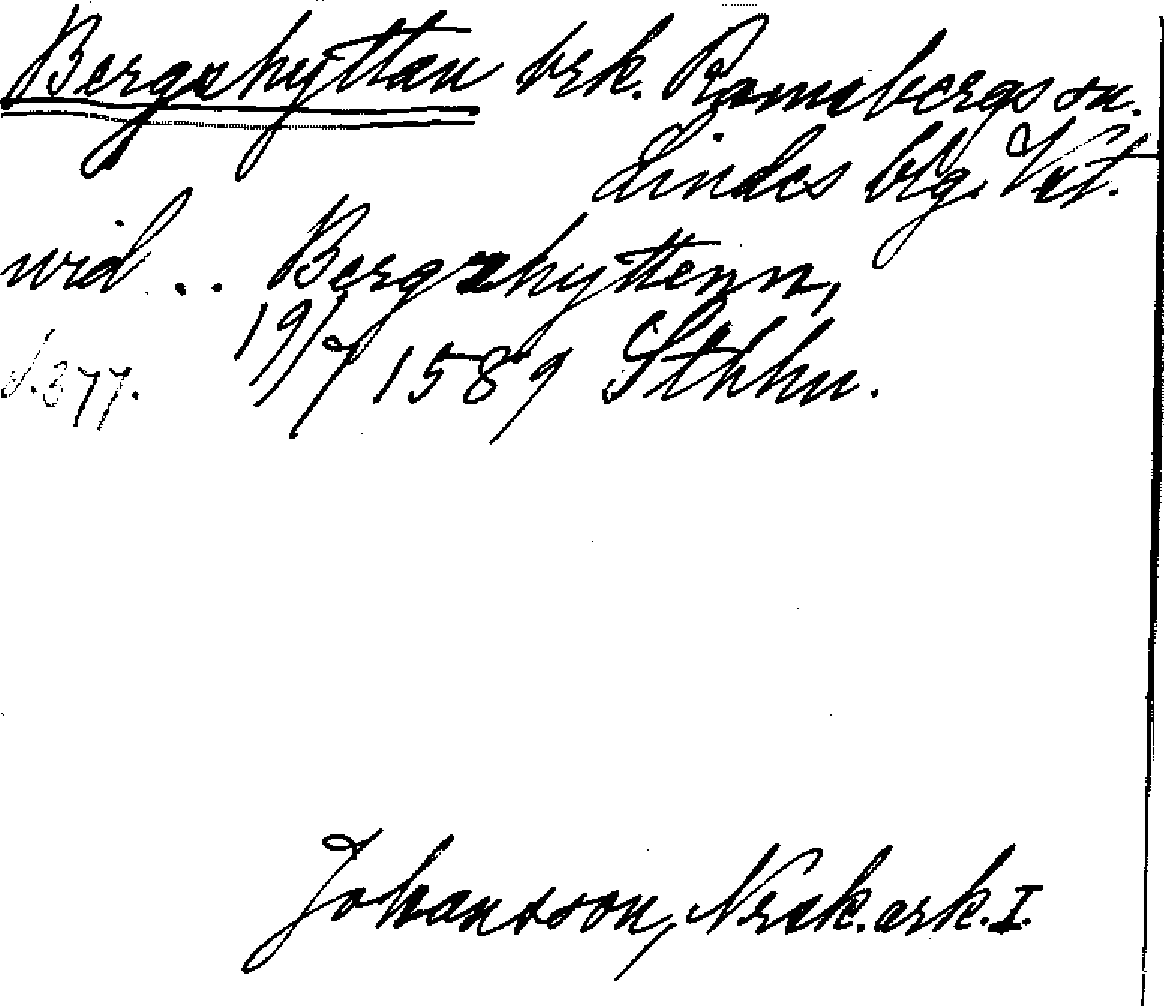 Bergshyttan brk. Ramsbergs sn.
Lindes blg. Vst.
wid .. Bergzhyttenn,
s.377. 19/7 1589 Sthlm.
Johansson, Norask.ark.I.